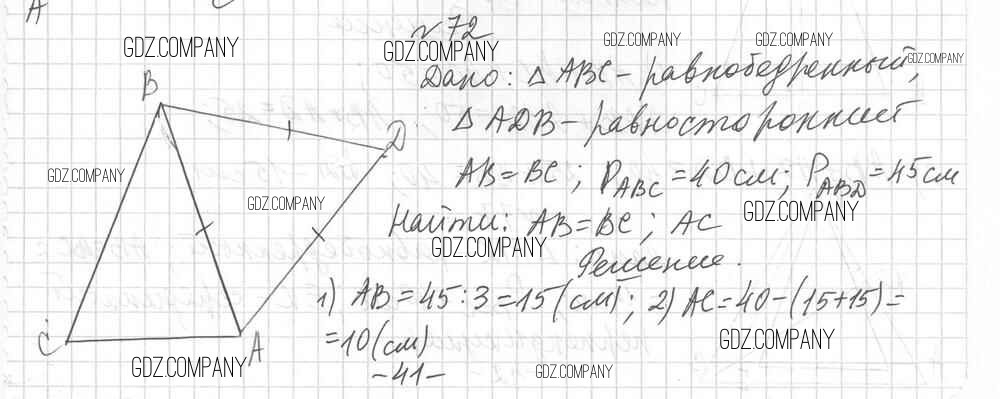 №72
Дано: △ABC – равнобедренный,
△ADB – равносторонний
AB = BC; P_ABC = 40 см; P_ABD = 45 см
Найти: AB = BC; AC
Решение.
1) AB = 45 : 3 = 15 (см); 2) AC = 40 – (15 + 15) =
= 10 (см)
– 41 –
B
D
C
A
A
GDZ.COMPANY
GDZ.COMPANY
GDZ.COMPANY
GDZ.COMPANY
GDZ.COMPANY
GDZ.COMPANY
GDZ.COMPANY
GDZ.COMPANY
GDZ.COMPANY
GDZ.COMPANY
GDZ.COMPANY
GDZ.COMPANY